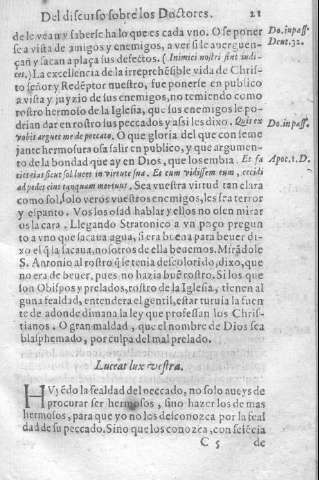 Del discurso sobre los Doctores. 21
de le vean y saberse ha lo que es cada vno. O se poner
se a vista de amigos y enemigos, a ver si le auerguen-
çan y sacan a plaça sus defectos. ( Inimici nostri sint iudi-
ces.) La excellencia de la irreprehēsible vida de Chris-
to señor y Redēptor nuestro, fue ponerse en publico
a vista y juyzio de sus enemigos, no temiendo como
rostro hermoso de la Iglesia, que sus enemigos le po-
drian dar en rostro sus peccados y assi les dixo. Quis ex
vobis arguet me de peccato. O que gloria del que con seme
jante hermosura osa salir en publico, y que argumen-
to de la bondad que ay en Dios, que los embia. Et fa
cies eius sicut sol lucet in virtute sua. Et cum vidissem eum, cecidi
ad pedes eius tanquam mortuus. Sea vuestra virtud tan clara
como sol, solo veros vuestros enemigos, les sea terror
y espanto. Vos los osad hablar y ellos no osen mirar
os la cara. Llegando Stratonico a vn poço pregun
to a vno que sacaua agua, si era buena para beuer di-
xo el q̄ la sacaua, nosotros de ella beuemos. Mirādole
S. Antonio al rostro q̄ le tenia descolorido, dixo, que
no era de beuer, pues no hazia buē rostro. Si los que
son Obispos y prelados, rostro de la Iglesia, tienen al
guna fealdad, entendera el gentil, estar turuia la fuen
te de adonde dimana la ley que professan los Chris-
tianos. O gran maldad, que el nombre de Dios sea
blasphemado, por culpa del mal prelado.
Luceat lux vestra.
HVyēdo la fealdad del peccado, no solo aueys de
procurar ser hermosos, sino hazer los de mas
hermosos, para que yo no los desconozca por la feal
dad de su peccado. Sino que los conozca, con sciēcia
C 5 de
Do. in pass.
Deut. 32.
Do. in pass.
Apoc. 1. D.